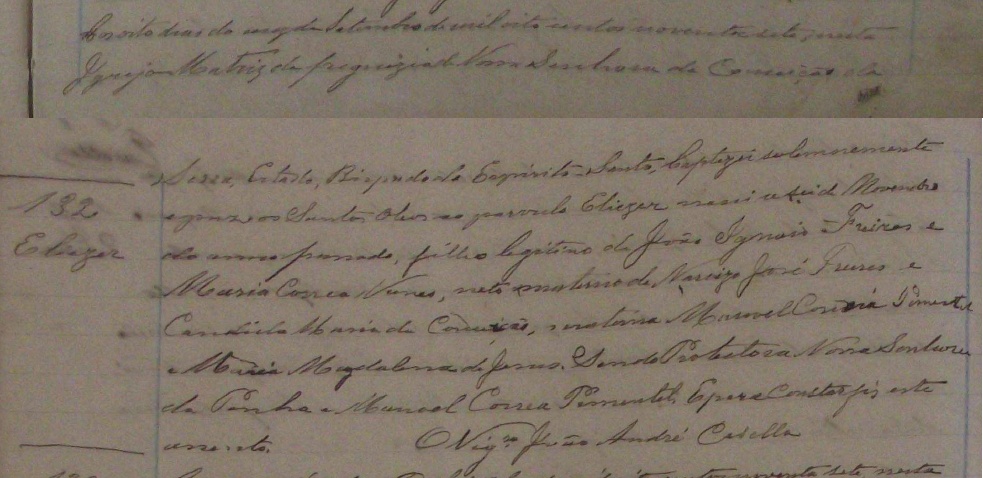 dos oito dias do mez de Setembro de mil oito centos noventa sete, nesta
Igreja Matriz da freguezia de Nossa Senhora da Conceição da
Serra, Estado, Bispado do Espirito-Santo, baptizei solemnemente
132
e puz os Santos Oleos ao parvulo Eliezer nasci a seis de Novembro
Eliezer
do anno passado, filho legitimo de João Ignacio Freires e
Maria Correa Nunes, neto materno de Narcizo José Freires e
Candida Maria da Conceição, Manoel Correia Pimentel
e Maria Magdalena de Jesus. Sendo Protectora Nossa Senhora
da Penha e Manoel Correa Pimentel. E para constar fiz este
assento. O Vigro João André Casella
noventa sete, nesta